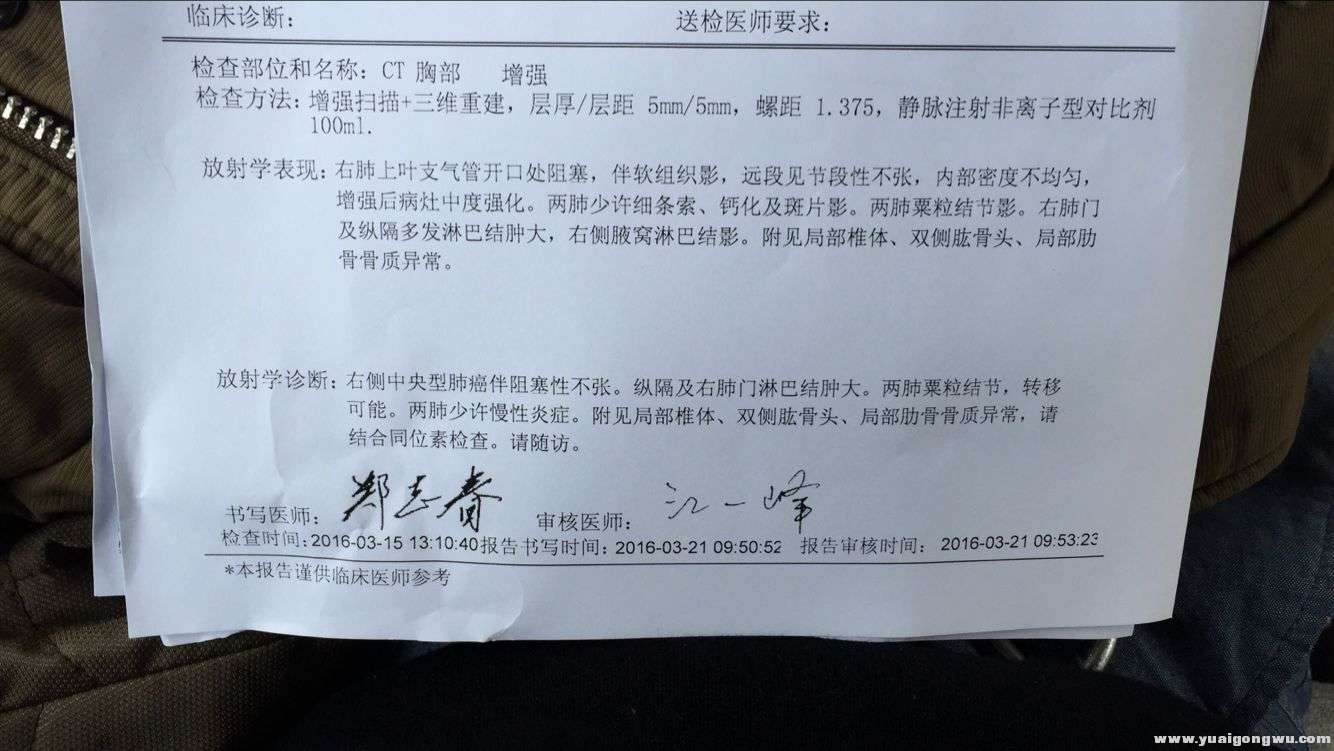 临床诊断： 送检医师要求：
检查部位和名称：CT 胸部 增强
检查方法：增强扫描+三维重建，层厚/层距 5mm/5mm，螺距 1.375，静脉注射非离子型对比剂
100ml.
放射学表现：右肺上叶支气管开口处阻塞，伴软组织影，远段见节段性不张，内部密度不均匀，
增强后病灶中度强化。两肺少许细条索、钙化及斑片影。两肺粟粒结节影。右肺门
及纵隔多发淋巴结肿大，右侧腋窝淋巴结影。附见局部椎体、双侧肱骨头、局部肋
骨骨质异常。
放射学诊断：右侧中央型肺癌伴阻塞性不张。纵隔及右肺门淋巴结肿大。两肺粟粒结节，转移
可能。两肺少许慢性炎症。附见局部椎体、双侧肱骨头、局部肋骨骨质异常，请
结合同位素检查。请随访。
书写医师：郑志春 审核医师：江一峰
检查时间：2016-03-15 13:10:40报告书写时间：2016-03-21 09:50:52 报告审核时间： 2016-03-21 09:53:23
*本报告谨供临床医师参考
www.yuaigongwu.com